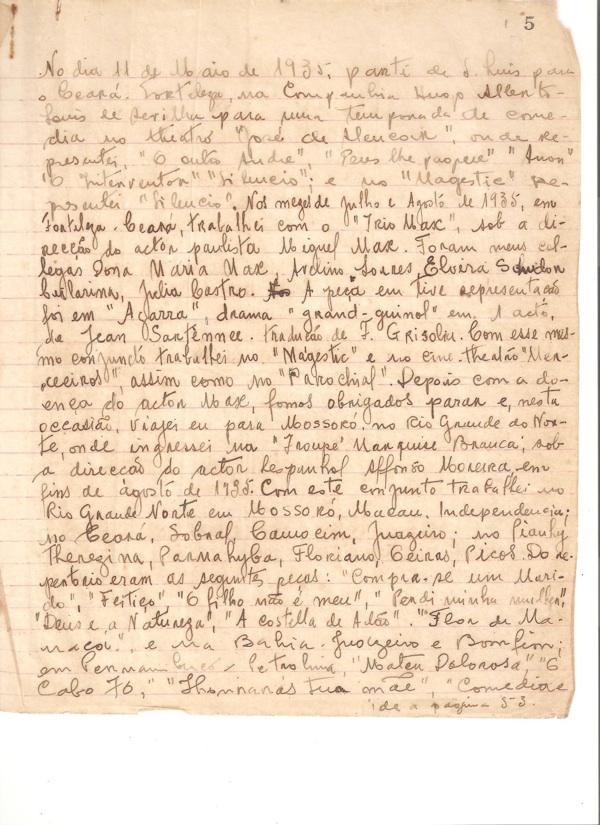 5
No dia 11 de Maio de 1935, parti de S. Luis para
o Ceará. Fortaleza, na Companhia Hugo Allento-
Louis de para uma temporada de come-
dia no theatro "José de Alencar", onde re-
presentei, "O outro André", "Peres lhe pagueie" "Anon"
"O Interventor" "Silencio"; e no "Magestic" re-
presentei "Silencio". Nos mezes de Julho e Agosto de 1935, em
Fortaleza - Ceará, trabalhei com o "Trio Max", sob a di-
recção do actor paulista Miguel Max. Foram meus col-
legas Dona Maria Max, Avelino Soares, Elvira
Julia Castro. A peça em tive representação
foi em "A Garra", drama "grand-guinol" em 1 acto,
de Jean Sartennee. traducção de F. Grisolia. Com esse mes-
mo conjuncto trabalhei no "Magestic" e no cine-theatro "Mer-
ceeiros", assim como no "Parochial". Depois com a do-
ença do actor Max, fomos obrigados parar e, nesta
occasião, viajei eu para Mossoró, no Rio Grande do Nor-
te, onde ingressei na "Troupe" Marquise Branca; sob
a direcção do actor hespanhol Affonso Moreira, em
fins de agosto de 1935. Com este conjuncto trabalhei no
Rio Grande Norte em Mossoró, Macau. Independencia;
no Ceará, Sobral, Camocim, Juazeiro; no Piauhy
Therezina, Parnahyba, Floriano, Oeiras, Picos. Do re-
pertorio eram as seguintes peças: "Compra-se um Mari-
do", "Feitiço", "O filho não é meu", "Perdi minha mulher",
"Deus e a Natureza", "A costella de Adão". "Flor de Ma-
nacá", e na Bahia. Juazeiro e Bomfim;
em Pernambuco - Petrolina, "Mater Dolorosa" "O
Cabo 70," "Honrarás tua mãe", "Comediae
ide a pagina 53.